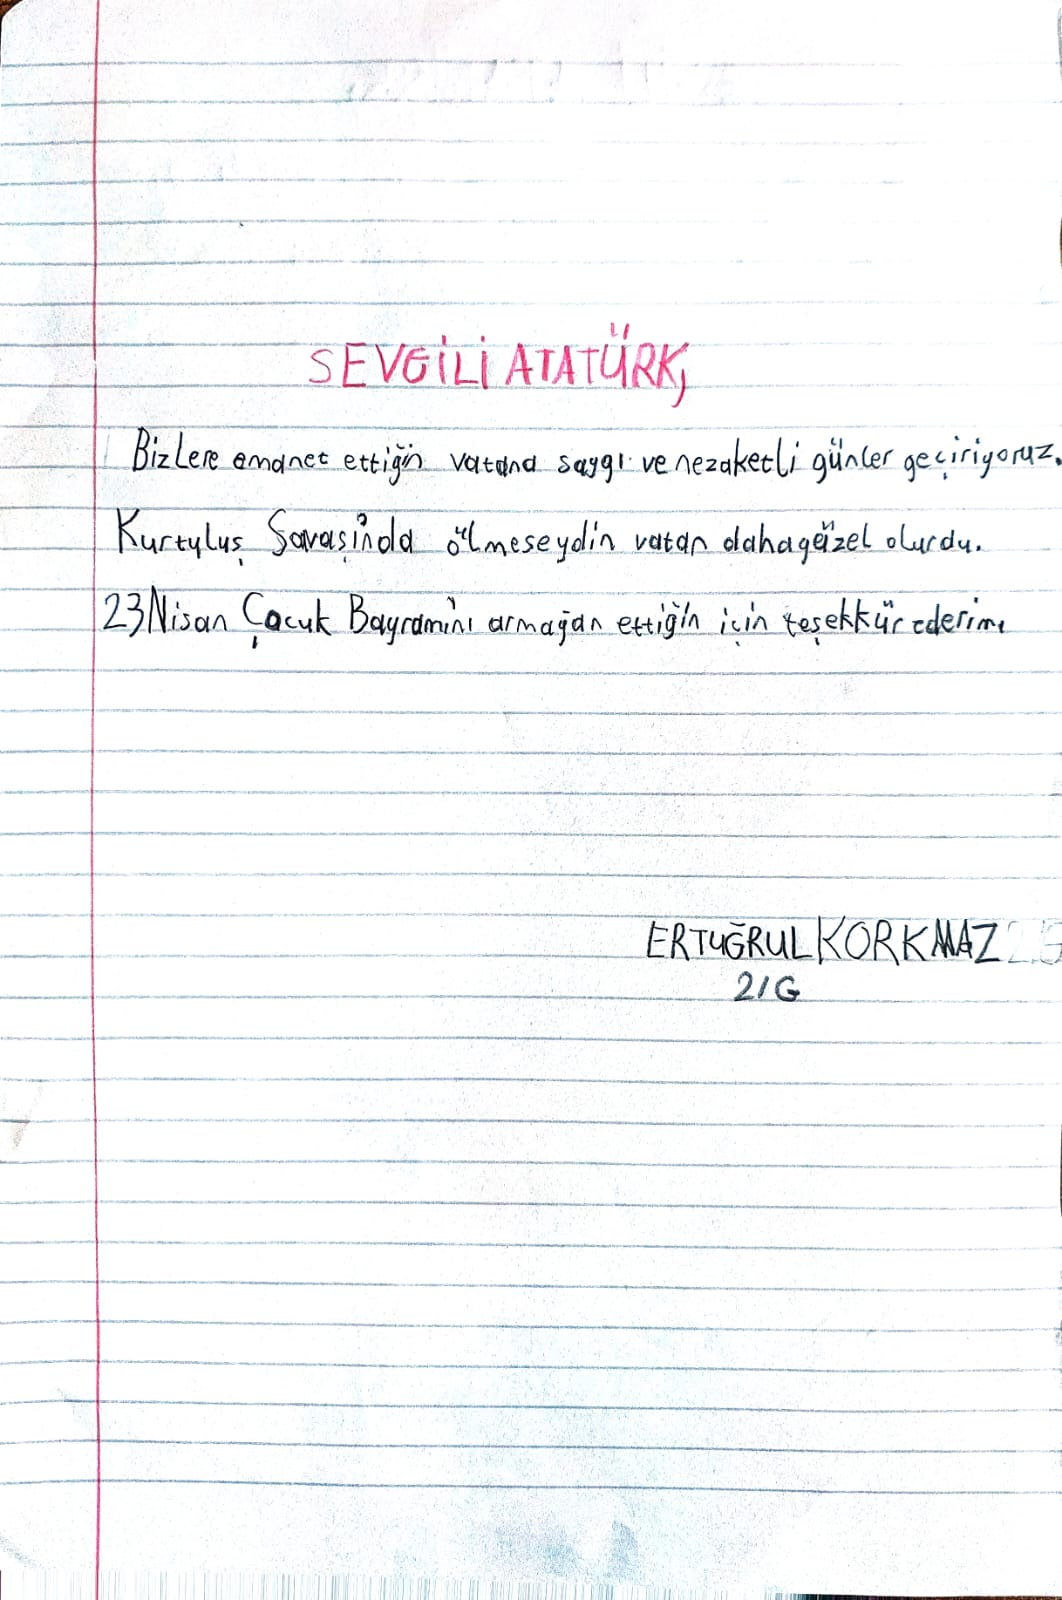 SEVGİLİ ATATÜRK,
Bizlere emanet ettiğin vatana saygı ve nezaketli günler geçiriyoruz.
Kurtyluş Savaşinda ölmeseydin vatan daha güzel olurdu.
23 Nisan Çocuk Bayramini armağan ettiğin için teşekkür ederim.
ERTUĞRUL KORKMAZ
2/G